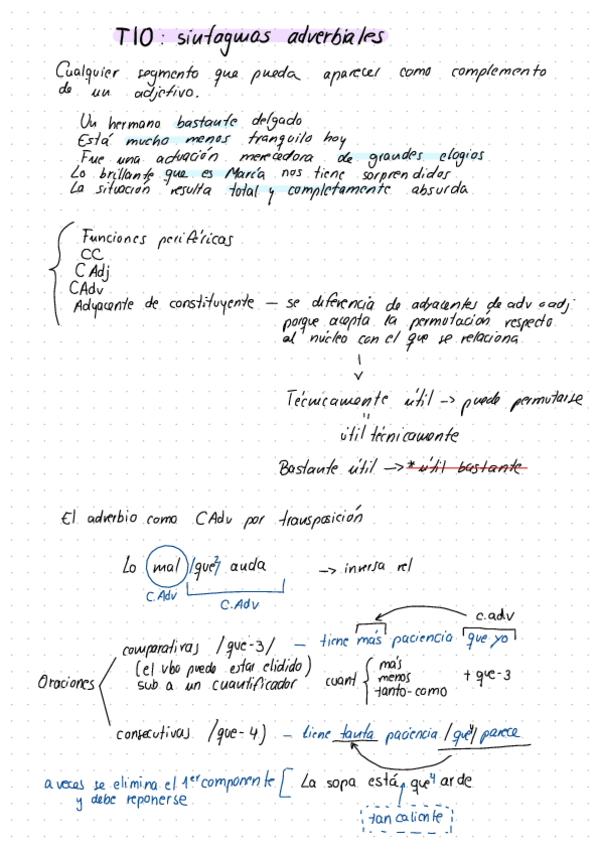 T10: sintagmas adverbiales
Cualquier segmento que pueda aparecer como complemento
de un adjetivo.
Un hermano bastante delgado
Está mucho menos tranquilo hoy
Fue una actuación merecedora de grandes elogios
Lo brillante que es María nos tiene sorprendidos
La situación resulta total y completamente absurda
Funciones periféricas
CC
C Adj
CAdv
Adyacente de constituyente — se diferencia de adyacentes de adv o adj
porque acepta la permutación respecto
al núcleo con el que se relaciona
Técnicamente útil -> puede permutarse
=
útil técnicamente
Bastante útil -> * útil bastante
El adverbio como CAdv por transposición
Lo mal /que²/ anda -> inversa rel
C.Adv
C.Adv
c.adv
comparativas /que-3/ — tiene más paciencia que yo
(el vbo puede estar elidido)
sub a un cuantificador
Oraciones
cuant { más
menos
tanto-como
+ que-3
consecutivas /que-4) — tiene tanta paciencia /que⁴/ parece
a veces se elimina el 1er componente [ La sopa está, que⁴ arde
y debe reponerse
tan caliente